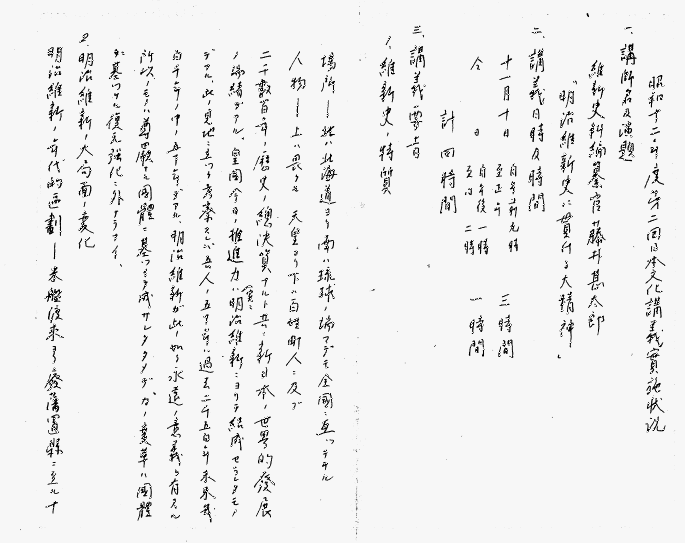 昭和十二年度第二回日本文化講義實施狀況
一、講師名及演題
維新史料編纂官 藤井甚太郎
「明治維新史ニ貫ケル大精神」
二、講義日時及時間
十一月十日 自午前九時 至正午 三時間
仝 日 自午後一時 至仝 二時 一時間
計四時間
三、講義ノ要旨
1、維新史ノ特質
場所ー北ハ北海道ヨリ南ハ琉球ノ端マデモ全國ニ亘ッテヰル
人物ー上ハ畏クモ 天皇ヨリ下ハ百姓町人ニ及ブ
二千數百年ノ歷史ノ總決算アルト共ニ新日本ノ世界的發展
ノ端緒デアル、皇國今日ノ推進力ハ(實ニ)明治維新ニヨリテ結成セラレタモノ
デアル、此ノ見地ニ立ッテ考察スレバ吾人ノ五十年ハ過去二千五百年未來幾
百千年ノ中ノ五十年デアル、明治維新ガ此ノ如ク永遠ノ意義ヲ有スル
所以ノモノハ尊嚴ナル國體ニ基ヅキ成サレタタメデアル、變革ハ國體
ニ基ヅケル復元強化ニ外ナラナイ、
2、明治維新ノ大局面ノ變化
明治維新ノ年代的區劃ー米艦渡來ヨリ發藩置縣ニ至ル十